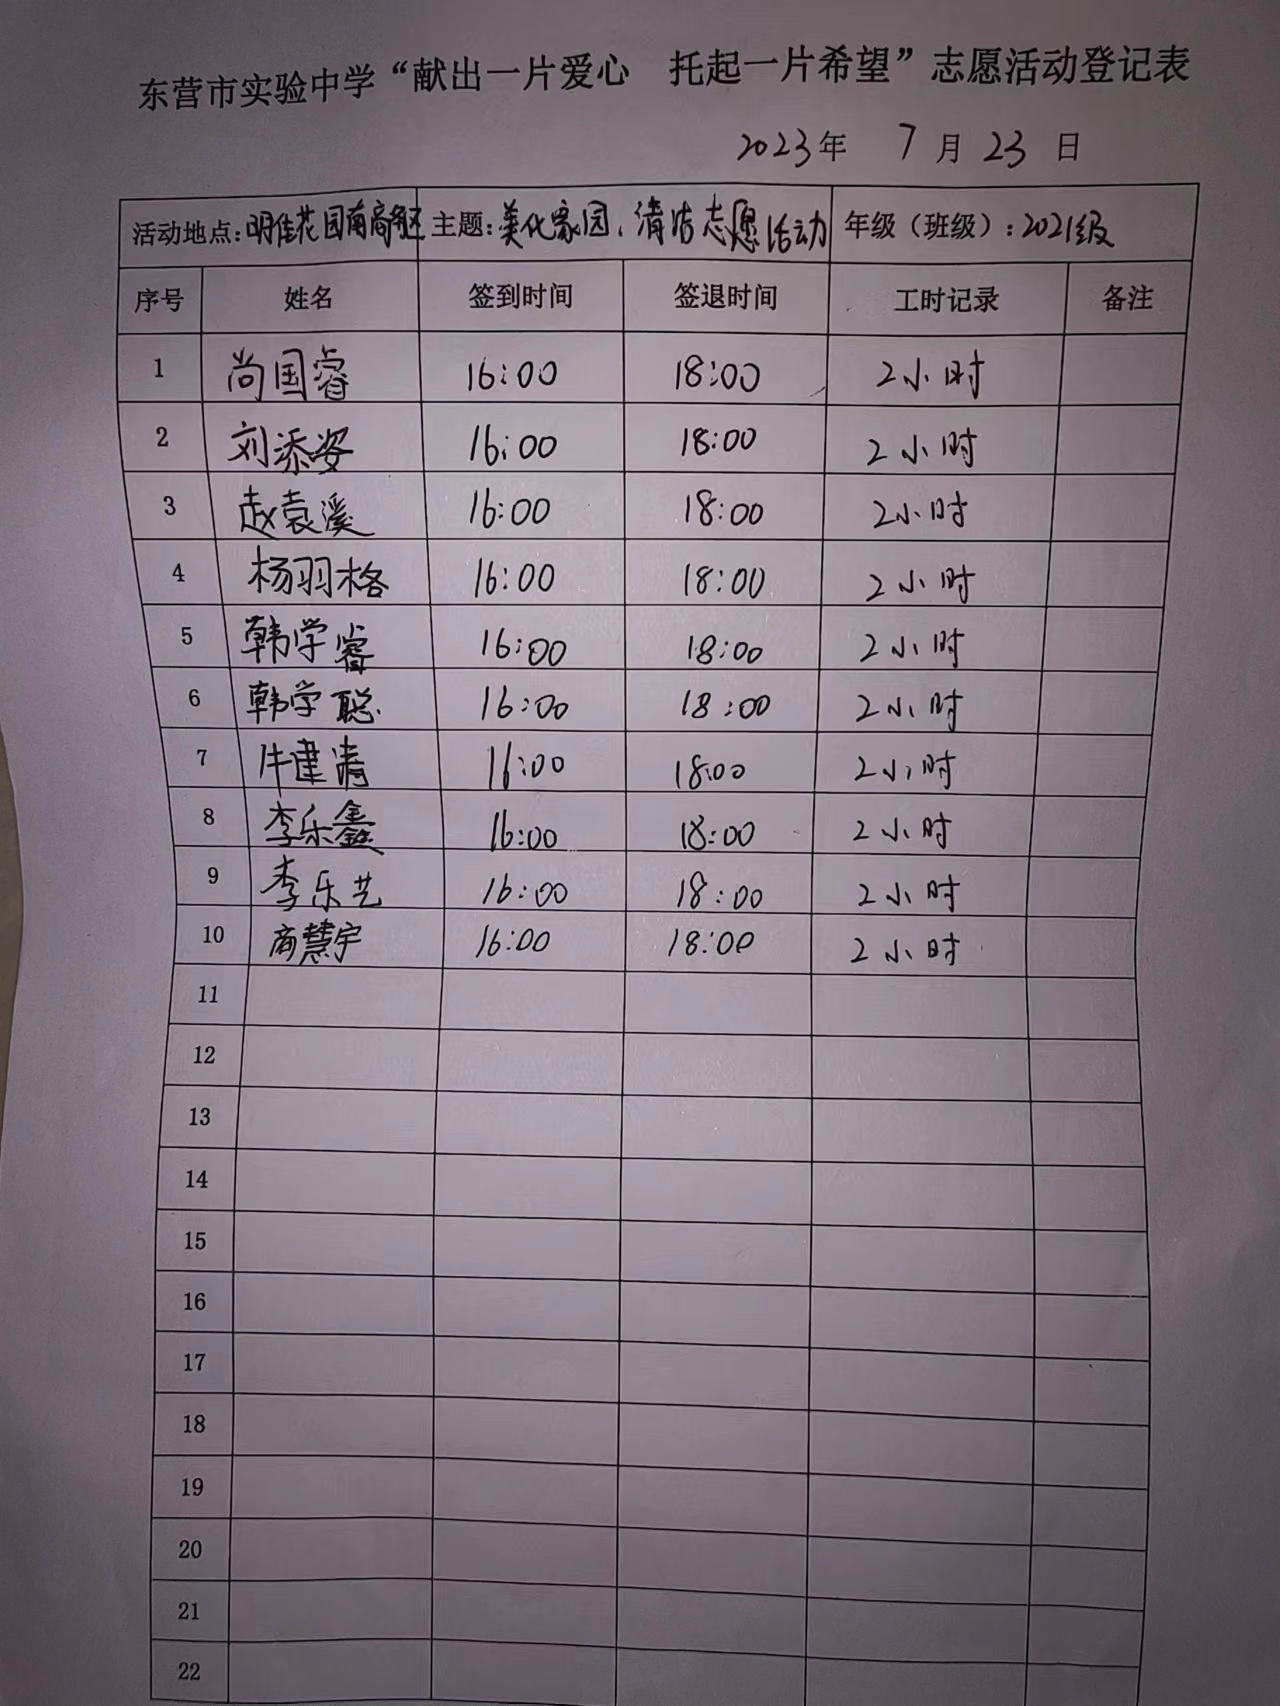 东营市实验中学“献出一片爱心 托起一片希望”志愿活动登记表
2023年 7月23日
活动地点:明佳花园南商务区 主题:美化家园、清洁志愿活动 年级（班级）：2021级
序号 姓名 签到时间 签退时间 工时记录 备注
1 尚国睿 16:00 18:00 2小时
2 刘添姿 16:00 18:00 2小时
3 赵袁溪 16:00 18:00 2小时
4 杨羽格 16:00 18:00 2小时
5 韩学睿 16:00 18:00 2小时
6 韩学聪 16:00 18:00 2小时
7 牛建清 16:00 18:00 2小时
8 李乐鑫 16:00 18:00 2小时
9 李乐艺 16:00 18:00 2小时
10 商慧宇 16:00 18:00 2小时
11
12
13
14
15
16
17
18
19
20
21
22